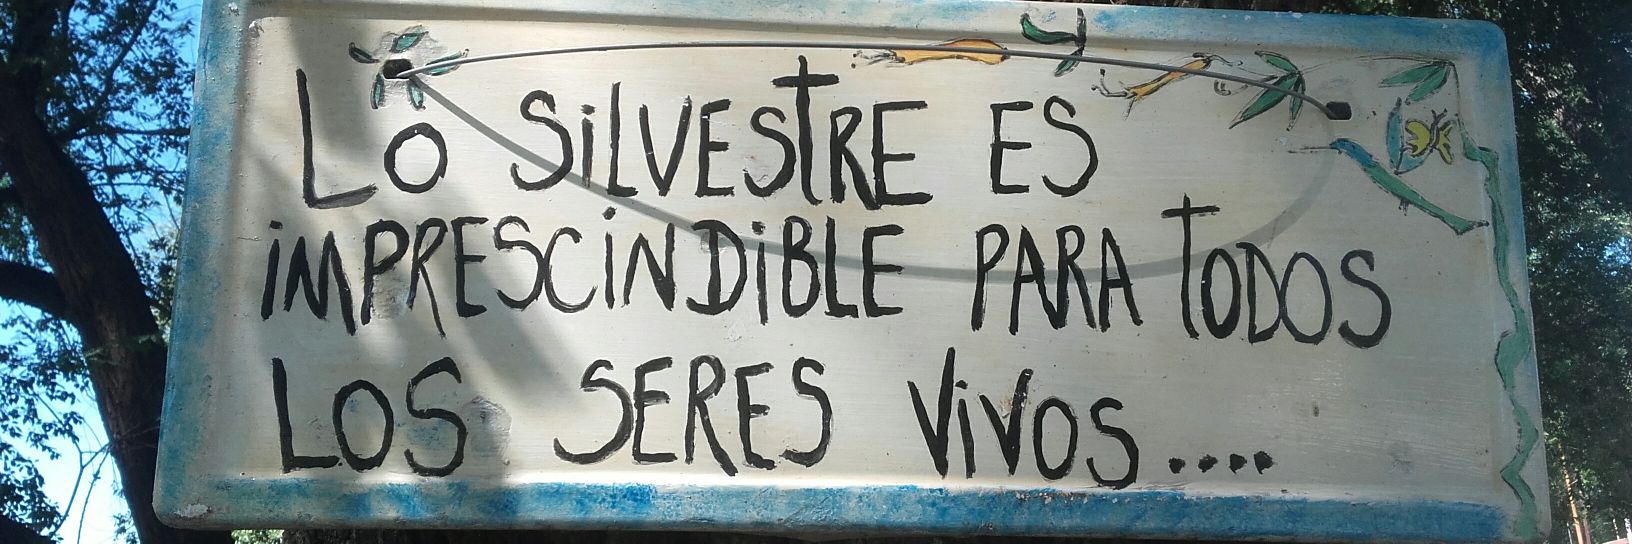 Lo SiLVEStRE ES
iMPRESCiNDiBLE PARA TODOS
LOS SERES ViVOS....